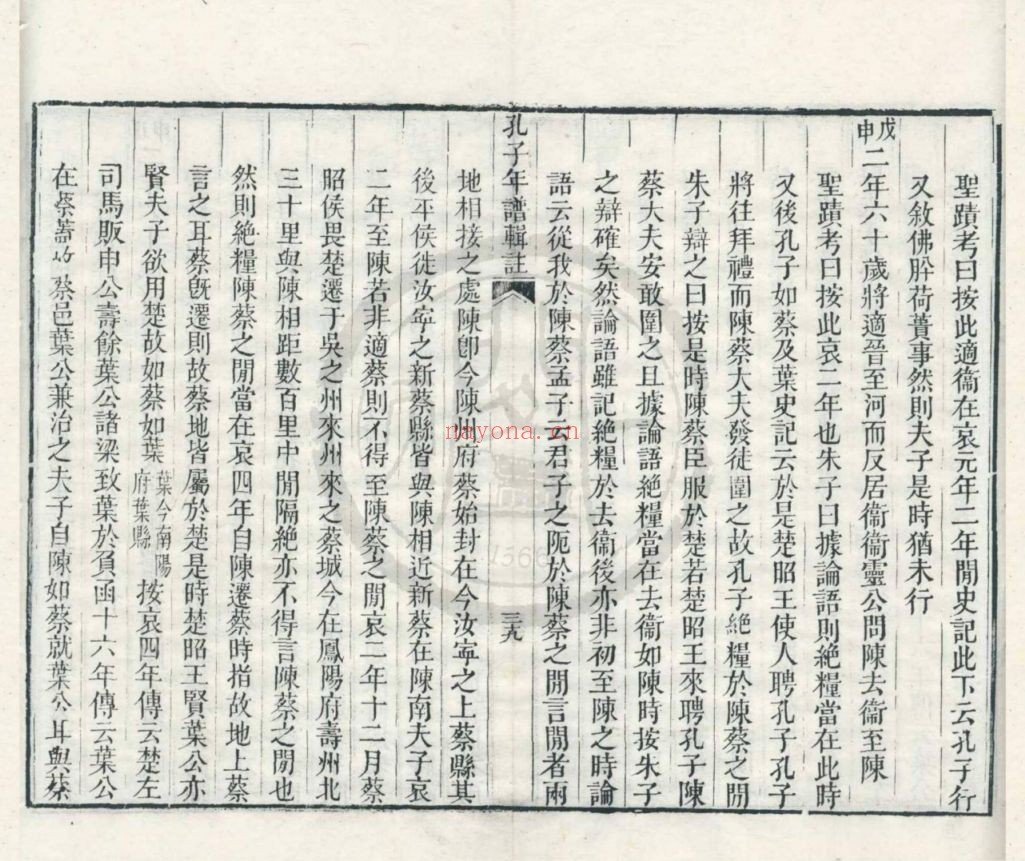 聖蹟考曰按此適衞在哀元年二年閒史記此下云孔子行
又敘佛肸荷蕢事然則夫子是時猶未行
戊申二年六十歲將適晉至河而反居衞衞靈公問陳去衞至陳
聖蹟考曰按此哀二年也朱子曰據論語則絶糧當在此時
又後孔子如蔡及葉史記云於是楚昭王使人聘孔子孔子
將往拜禮而陳蔡大夫發徒圍之故孔子絶糧於陳蔡之閒
朱子辯之曰按是時陳蔡臣服於楚若楚昭王來聘孔子陳
蔡大夫安敢圍之且據論語絶糧當在去衞如陳時按朱子
之辯確矣然論語雖記絶糧於去衞後亦非初至陳之時論
語云從我於陳蔡孟子云君子之阨於陳蔡之閒言閒者兩
孔子年譜輯註
三九
地相接之處陳卽今陳州府蔡始封在今汝寧之上蔡縣其
後平侯徙汝寧之新蔡縣皆與陳相近新蔡在陳南夫子哀
二年至陳若非適蔡則不得至陳蔡之閒哀二年十二月蔡
昭侯畏楚遷于吳之州來州來之蔡城今在鳳陽府壽州北
三十里與陳相距數百里中閒隔絶亦不得言陳蔡之閒也
然則絶糧陳蔡之閒當在哀四年自陳遷蔡時指故地上蔡
言之耳蔡旣遷則故蔡地皆屬於楚是時楚昭王賢葉公亦
賢夫子欲用楚故如蔡如葉葉今南陽府葉縣按哀四年傳云楚左
司馬販申公壽餘葉公諸梁致葉於負函十六年傳云葉公
在蔡蓋故蔡邑葉公兼治之夫子自陳如蔡就葉公耳與蔡
nayona.cn
1566